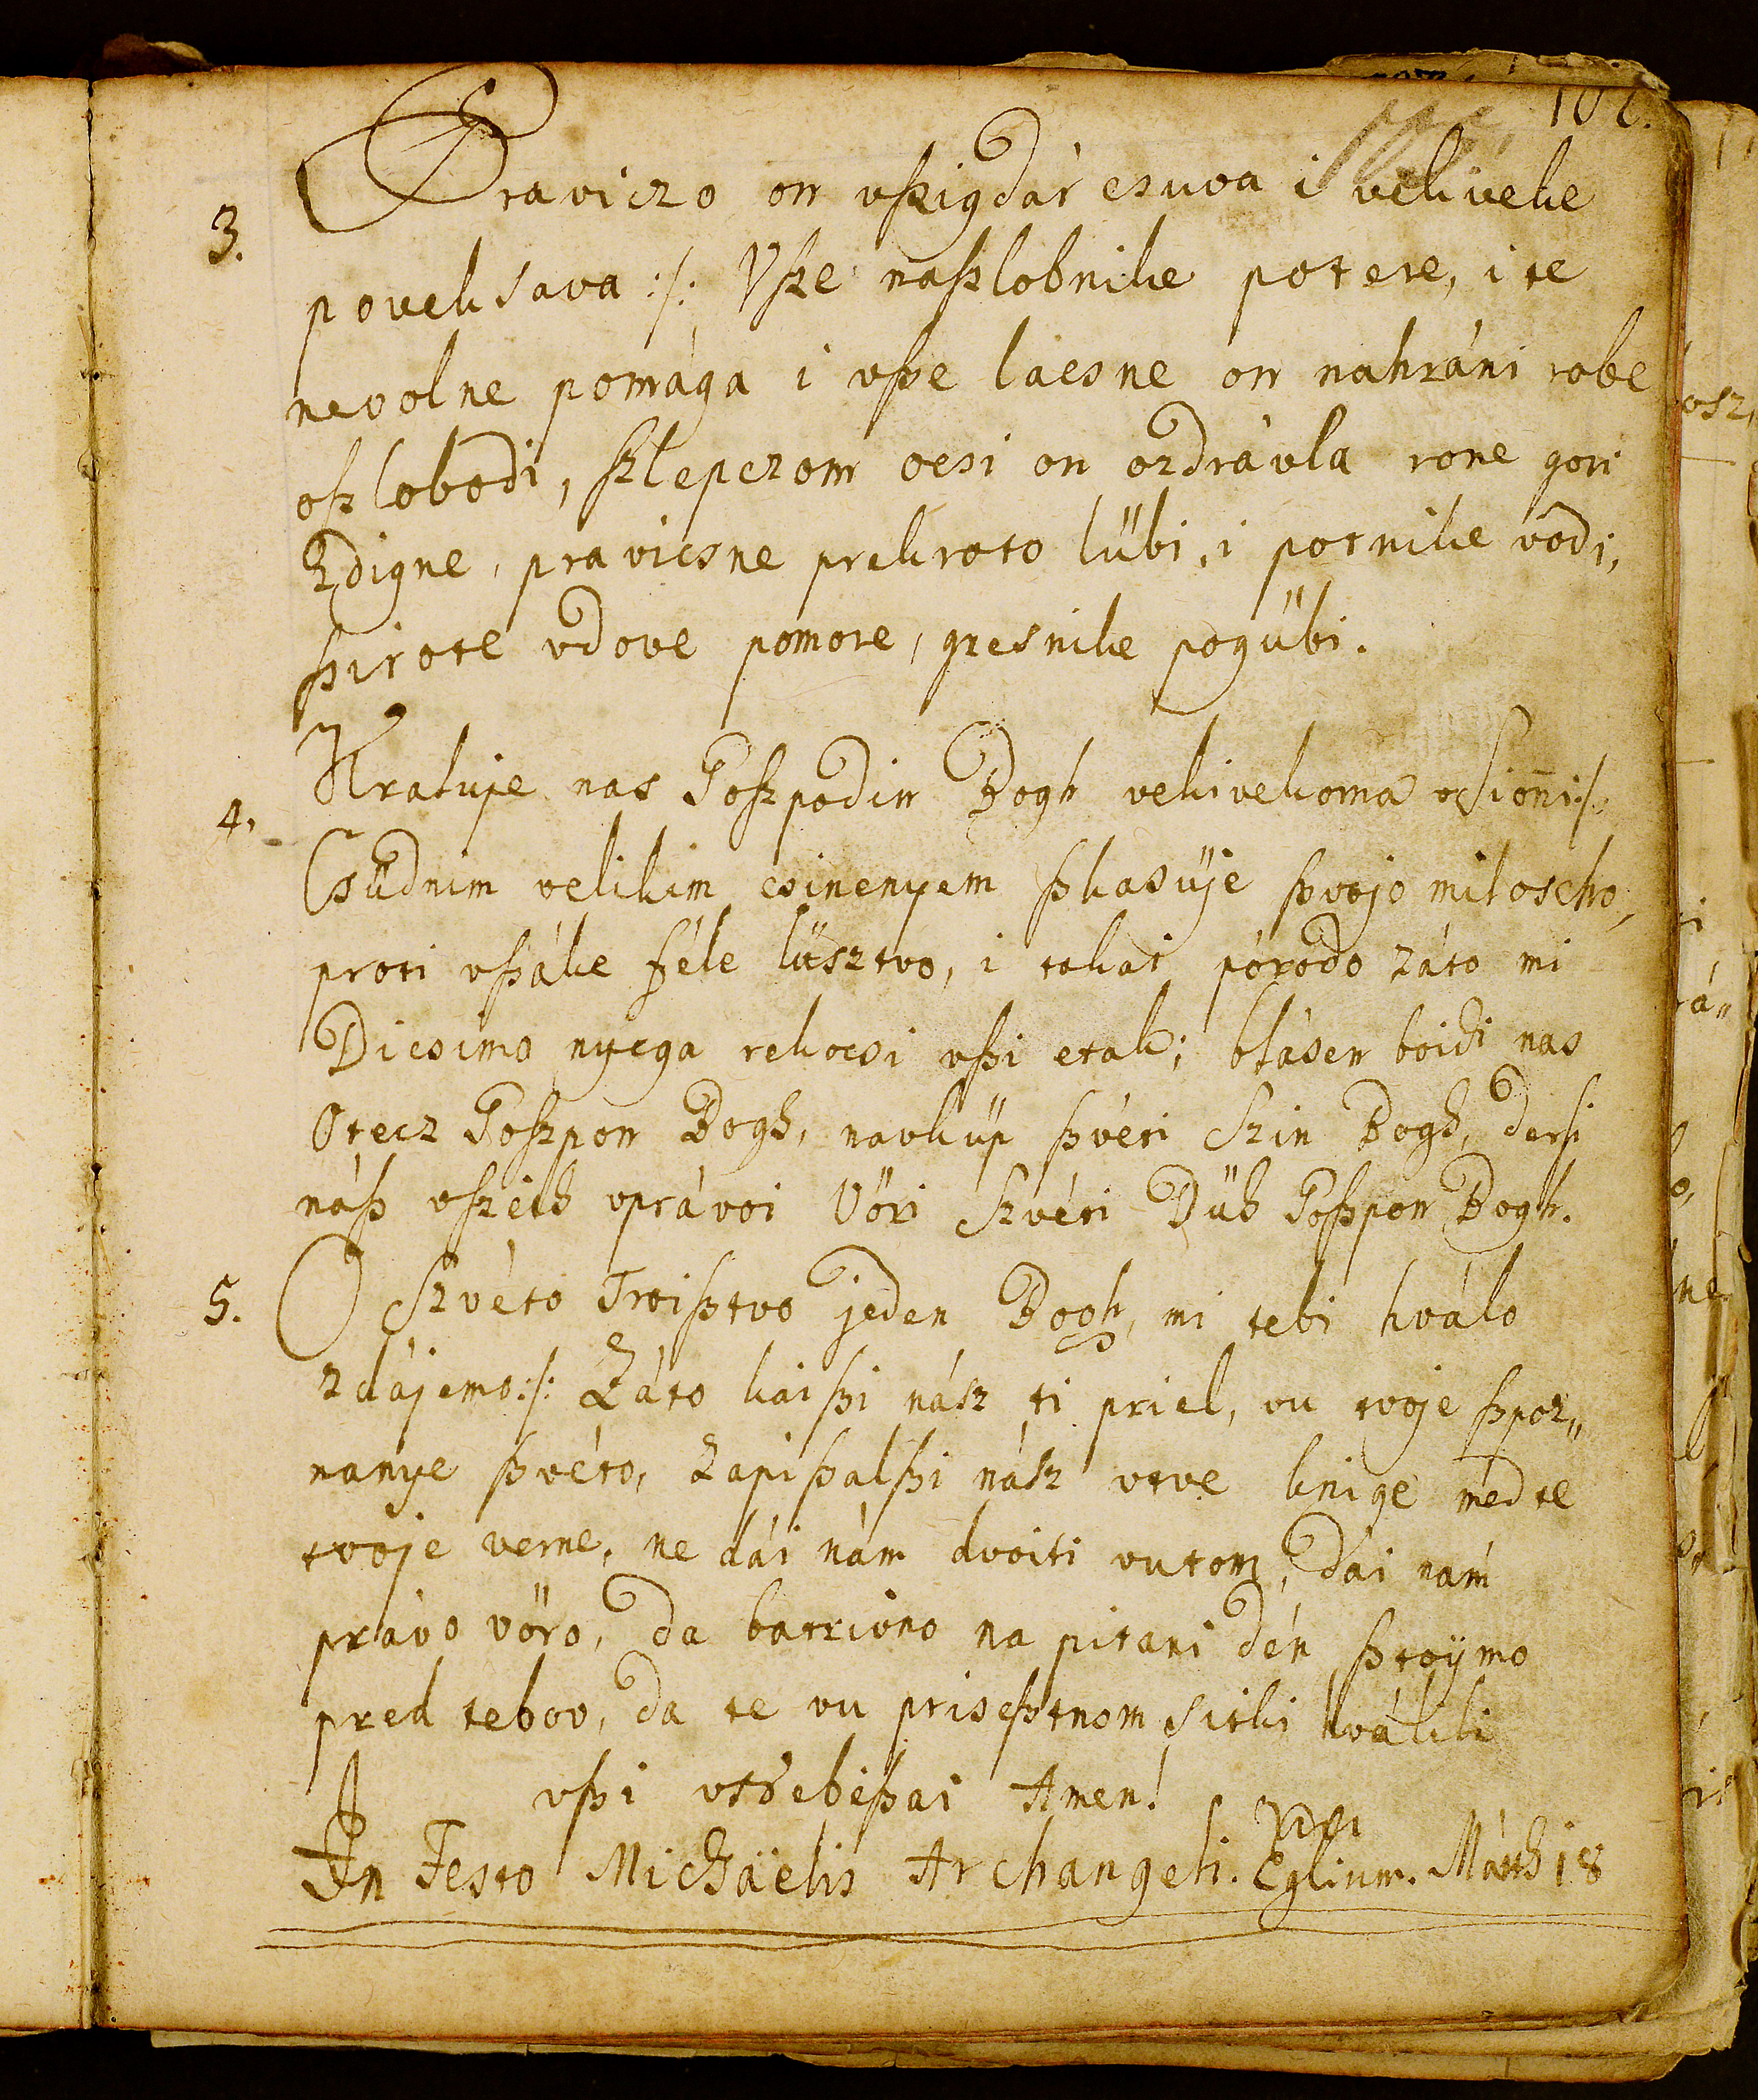 102.
3. Praviczo on vßigdár csuva i vekiveke
poveksava :/: Vße naßlobnike potere, i te
nevolne pomága i vße lacsne on nahráni robe
oßlobodi, ßlepczom ocsi on ozdrávla rone gori
Zdigne, pravicsne prekroto lübi, i potnike vodi,
ßirote vdove pomore, gresnike pogübi.
4. Kraluje nas Goßpodin Bogh vekivekoma vSioñi :/:
Csüdnim velikim csinenyem ßkasüje ßvojo miloscho,
proti vßáke féle lüsztvo, i tokai pórodo záto mi
Dicsimo nyega rekocsi vßi etak; blásen boidi nas
Otecz Goßpon Bogh, navküp ßvéti Szin Bogh, dersi
náß vßzeih vprávoi Vöri Szvéti Düh Goßpon Bogh.
5. O Szvéto Troißtvo jeden Bogh, mi tebi hválo
zdájemo :/: Záto kaißi nász ti priel, vu tvoje ßpoz„
nanye ßvéto, Zapißalßi nász vtve knige med te
tvoje verne, ne dái nám dvoiti vutom, dái nám
právo vöro, da batrivno na pitani dén ßtoÿmo
pred tebov, da te vu priseßtnom sitki hválili
vßi vsebißai Amen!
In Festo Michäelis Archangeli. Eglium. Máth 18